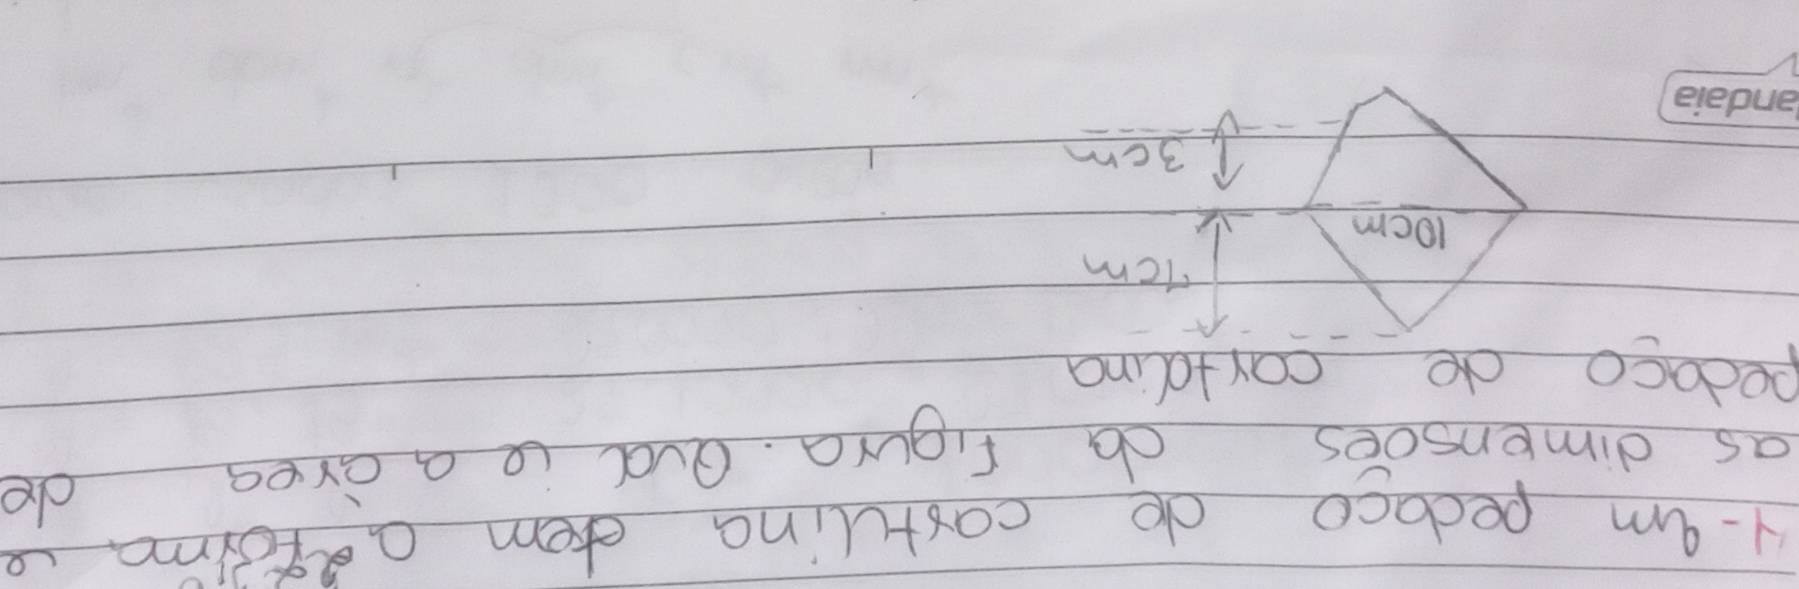 4- um pedaço de cartulina tem a forma e
as dimensões da Figura. Qual e a área de
pedaço de cartulina
7cm
10cm
3cm
andaia